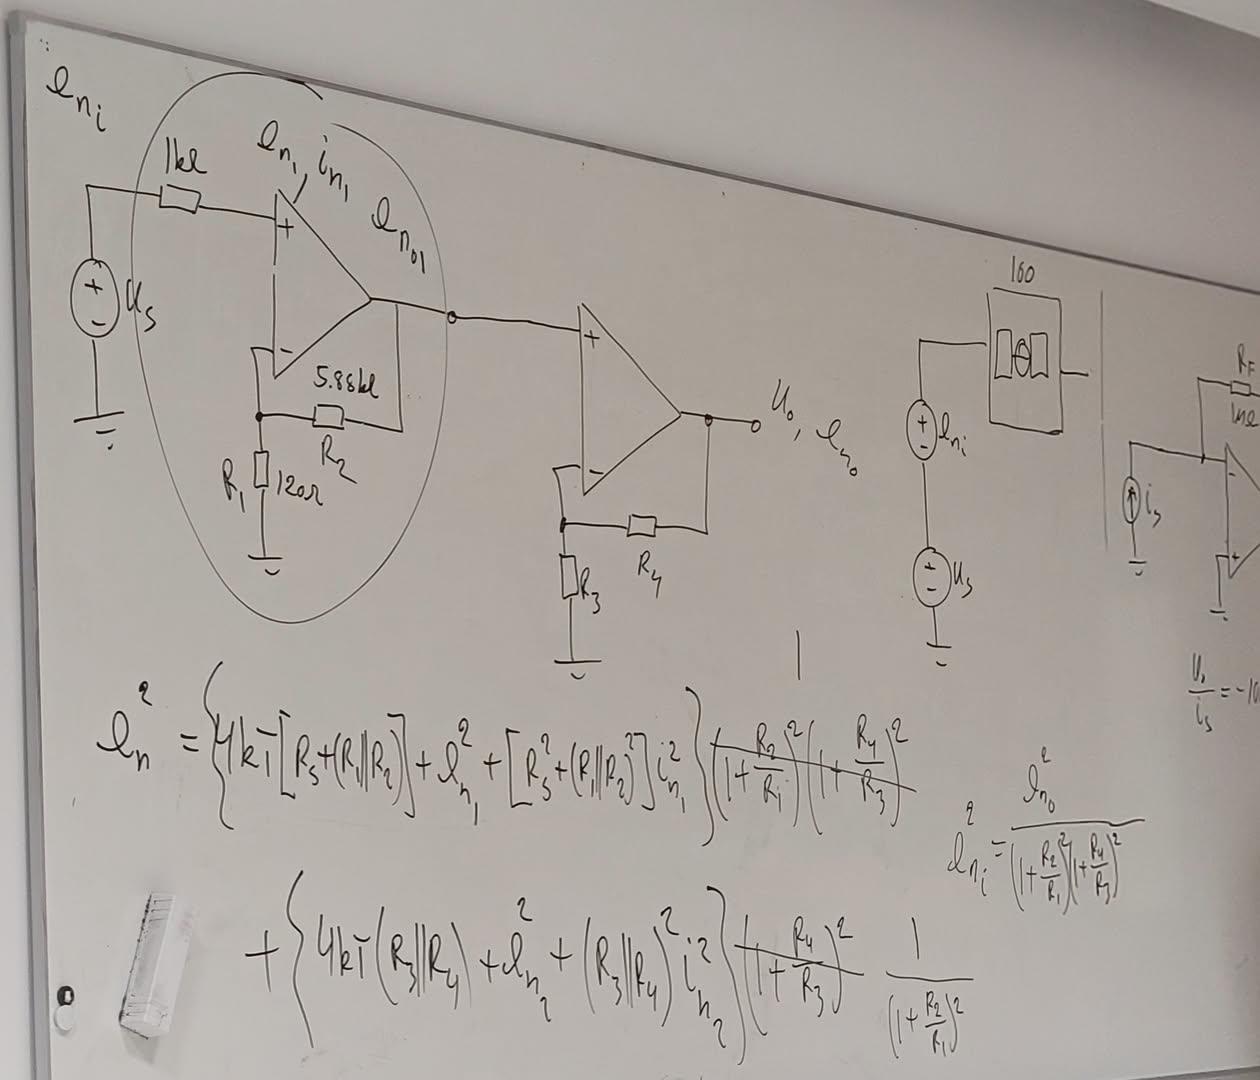 e_ni
1kΩ
e_n1, i_n1
e_no1
+
-
+
-
u_s
5.88kΩ
R_2
R_1
120Ω
+
-
u_o, e_no
R_4
R_3
160
+
-
e_ni
+
-
u_s
R_F
i_s
-
+
u_o/i_s = -10
e_n^2 = {4kT[R_s+(R_1||R_2)] + e_n1^2 + [R_s^2+(R_1||R_2)^2] i_n1^2} (1+R_2/R_1)^2 (1+R_4/R_3)^2
1
+ {4kT(R_3||R_4) + e_n2^2 + (R_3||R_4)^2 i_n2^2} (1+R_4/R_3)^2 1/(1+R_2/R_1)^2
e_ni^2 = e_no^2/((1+R_2/R_1)^2(1+R_4/R_3)^2)